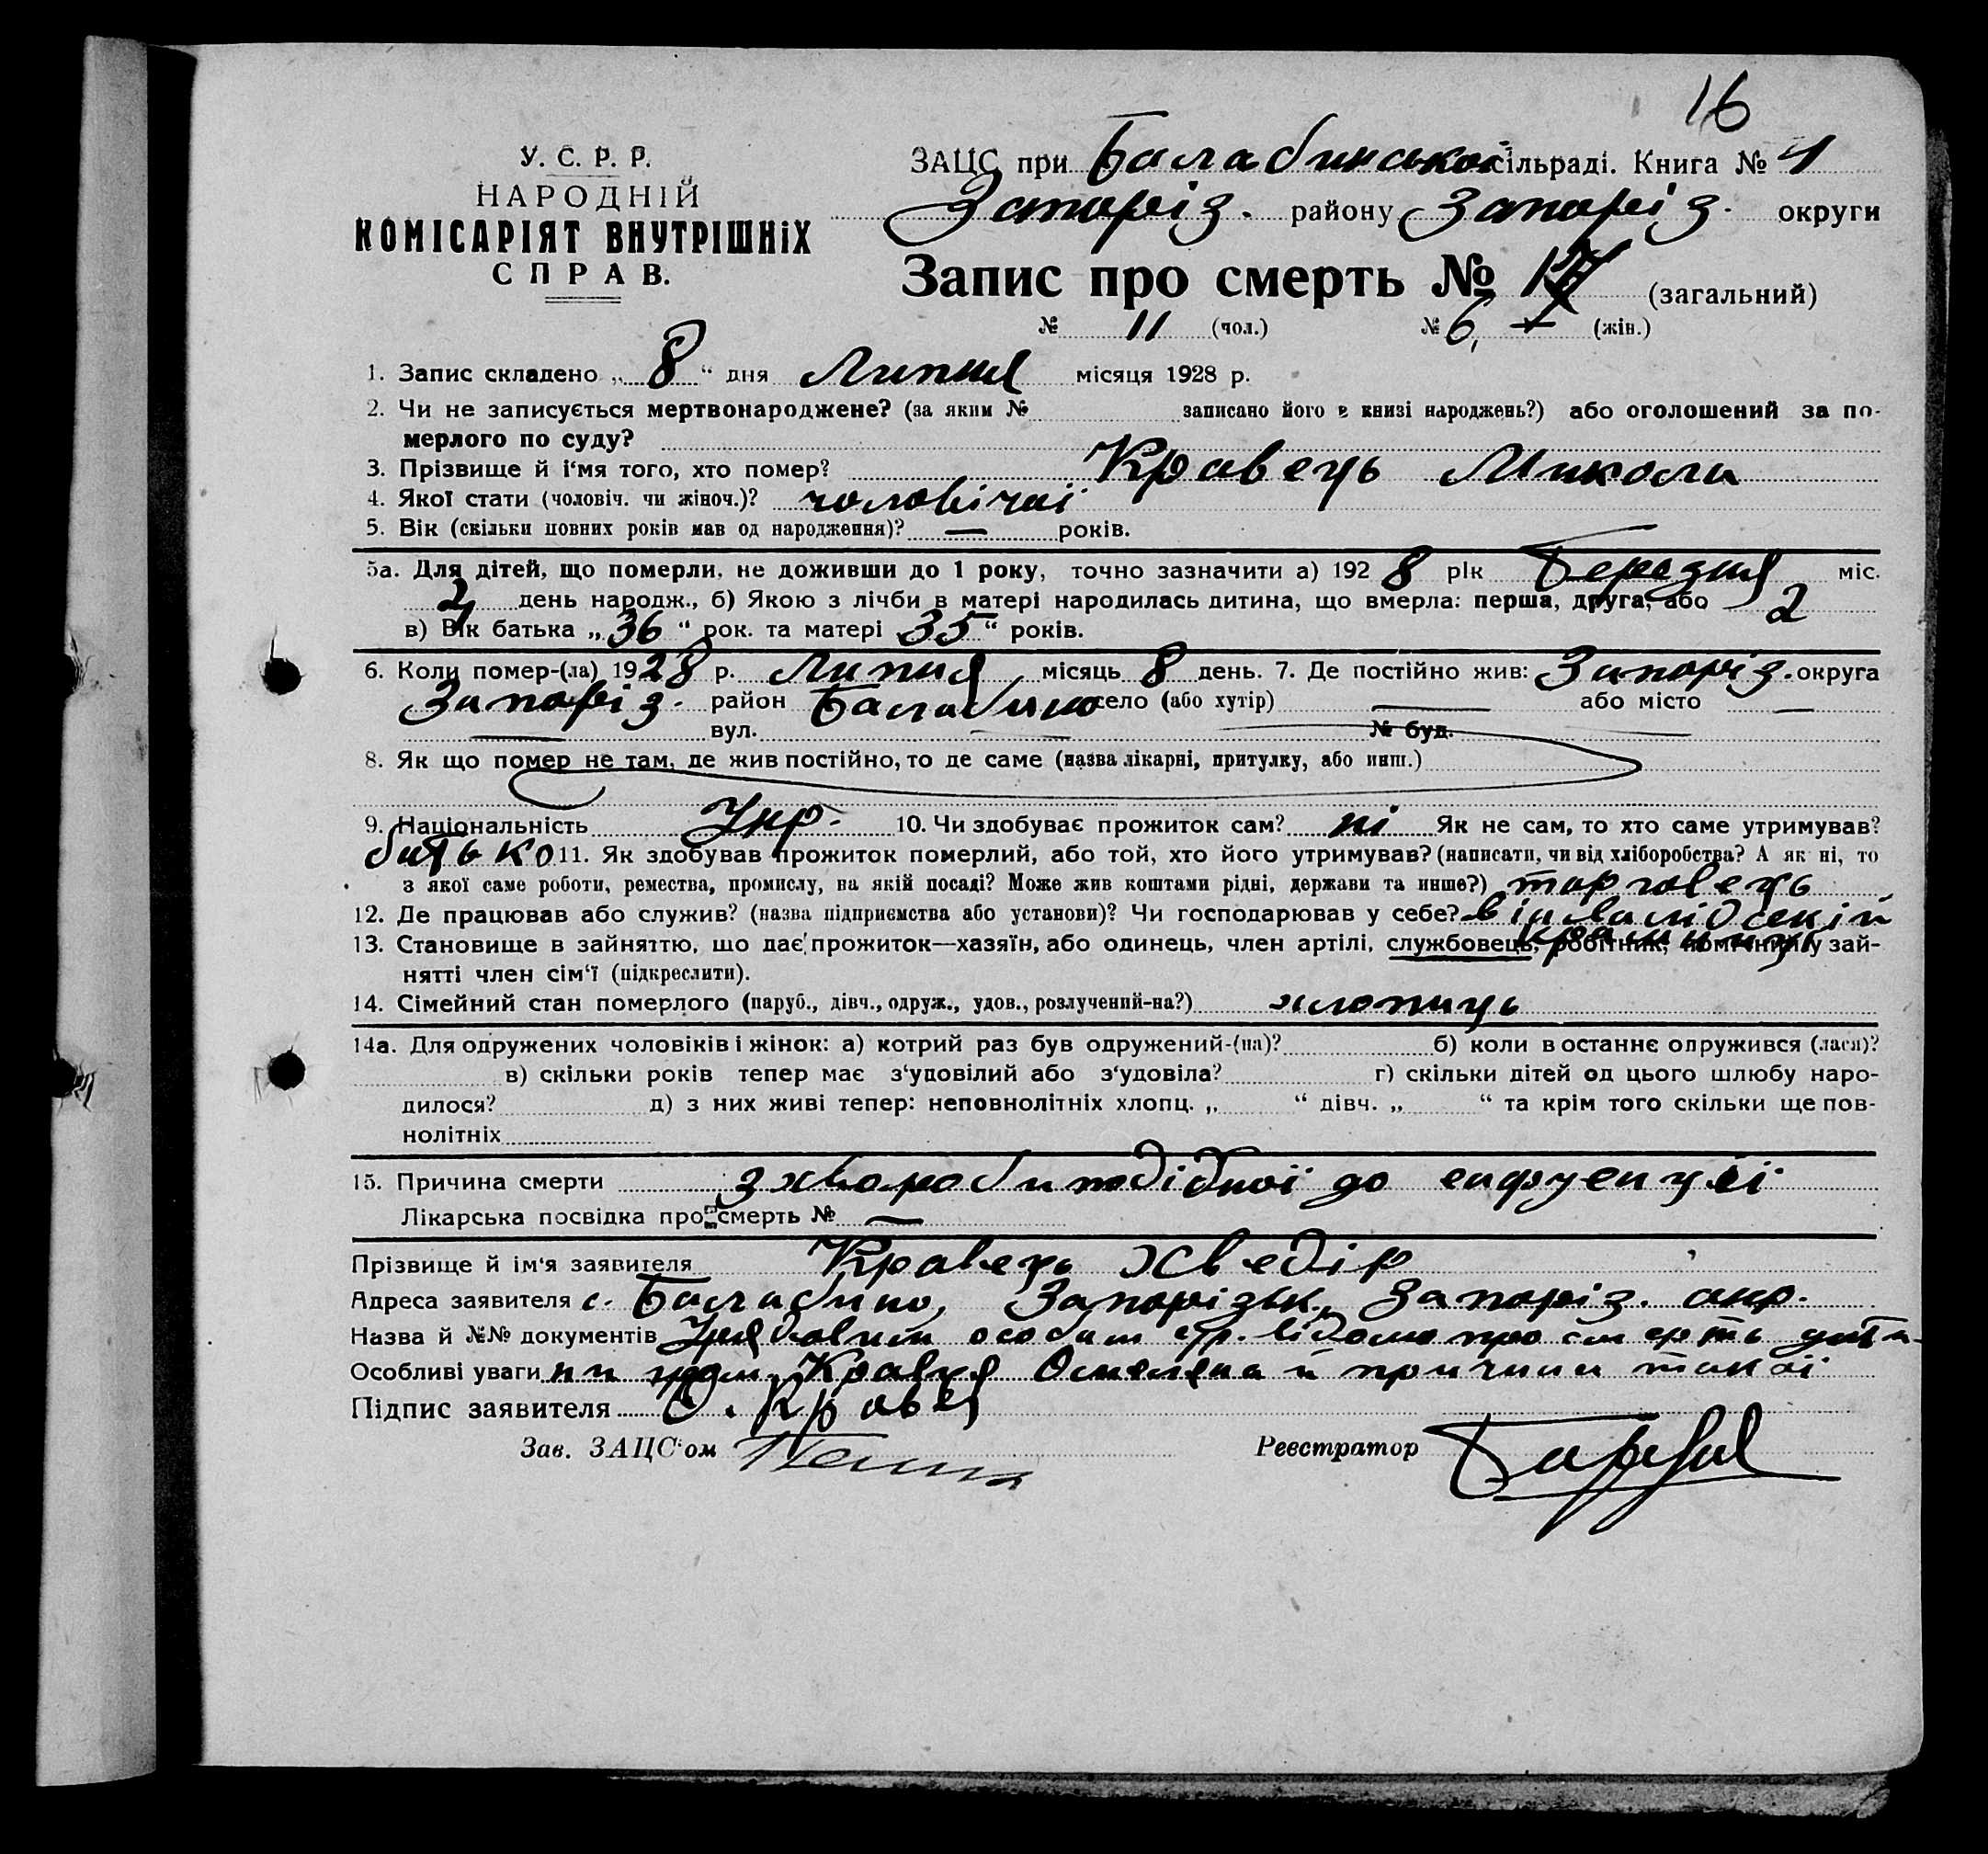 16
У. С. Р. Р.
НАРОДНІЙ
КОМІСАРІЯТ ВНУТРІШНІХ
СПРАВ.
ЗАЦС при Балабинській сільраді. Книга № 1
Запоріз. району Запоріз. округи
Запис про смерть № 17 (загальний)
№ 11 (чол.) № 6, (жін.)
1. Запис складено „ 8 “ дня Липня місяця 1928 р.
2. Чи не записується мертвонароджене? (за яким № записано його в книзі народжень?) або оголошений за по-
мерлого по суду?
3. Прізвище й і‘мя того, хто помер? Кравець Микола
4. Якої стати (чоловіч. чи жіноч.)? чоловічої
5. Вік (скільки повних років мав од народження)? — років.
5а. Для дітей, що померли, не доживши до 1 року, точно зазначити а) 192 8 рік Березня міс.
2 день народж., б) Якою з лічби в матері народилась дитина, що вмерла: перша, друга, або 2
в) Вік батька „ 36 “ рок. та матері 35 “ років.
6. Коли помер-(ла) 1928 р. Липня місяць 8 день. 7. Де постійно жив: Запоріз. округа
Запоріз. район Балабино село (або хутір) — або місто —
— вул. — № буд. —
8. Як що помер не там, де жив постійно, то де саме (назва лікарні, притулку, або инш.)
9. Національність Укр. 10. Чи здобуває прожиток сам? ні Як не сам, то хто саме утримував?
батько 11. Як здобував прожиток померлий, або той, хто його утримував? (написати, чи від хліборобства? А як ні, то
з якої саме роботи, ремества, промислу, на якій посаді? Може жив коштами рідні, держави та инше?) торговець
12. Де працював або служив? (назва підприємства або установи)? Чи господарював у себе? в інвалідській
крамниці
13. Становище в зайняттю, що дає прожиток—хазяїн, або одинець, член артілі, службовець, робітник, помічник у зай-
нятті член сім‘ї (підкреслити).
14. Сімейний стан померлого (паруб., дівч., одруж., удов., розлучений-на?) хлопець
14а. Для одружених чоловіків і жінок: а) котрий раз був одружений-(на)? б) коли в останнє одружився (лася)?
в) скільки років тепер має з‘удовілий або з‘удовіла? г) скільки дітей од цього шлюбу наро-
дилося? д) з них живі тепер: неповнолітніх хлопц. „ “ дівч. „ “ та крім того скільки ще пов-
нолітніх
15. Причина смерти з хвороби подібної до енфуенції
Лікарська посвідка про смерть № —
Прізвище й ім‘я заявителя Кравець Хведір
Адреса заявителя с. Балабино, Запорізьк., Запоріз. окр.
Назва й №№ документів особам відомо про смерть дити-
Особливі уваги ни гром. Кравця й причини такої
Підпис заявителя Кравец
Зав. ЗАЦС‘ом
Реєстратор